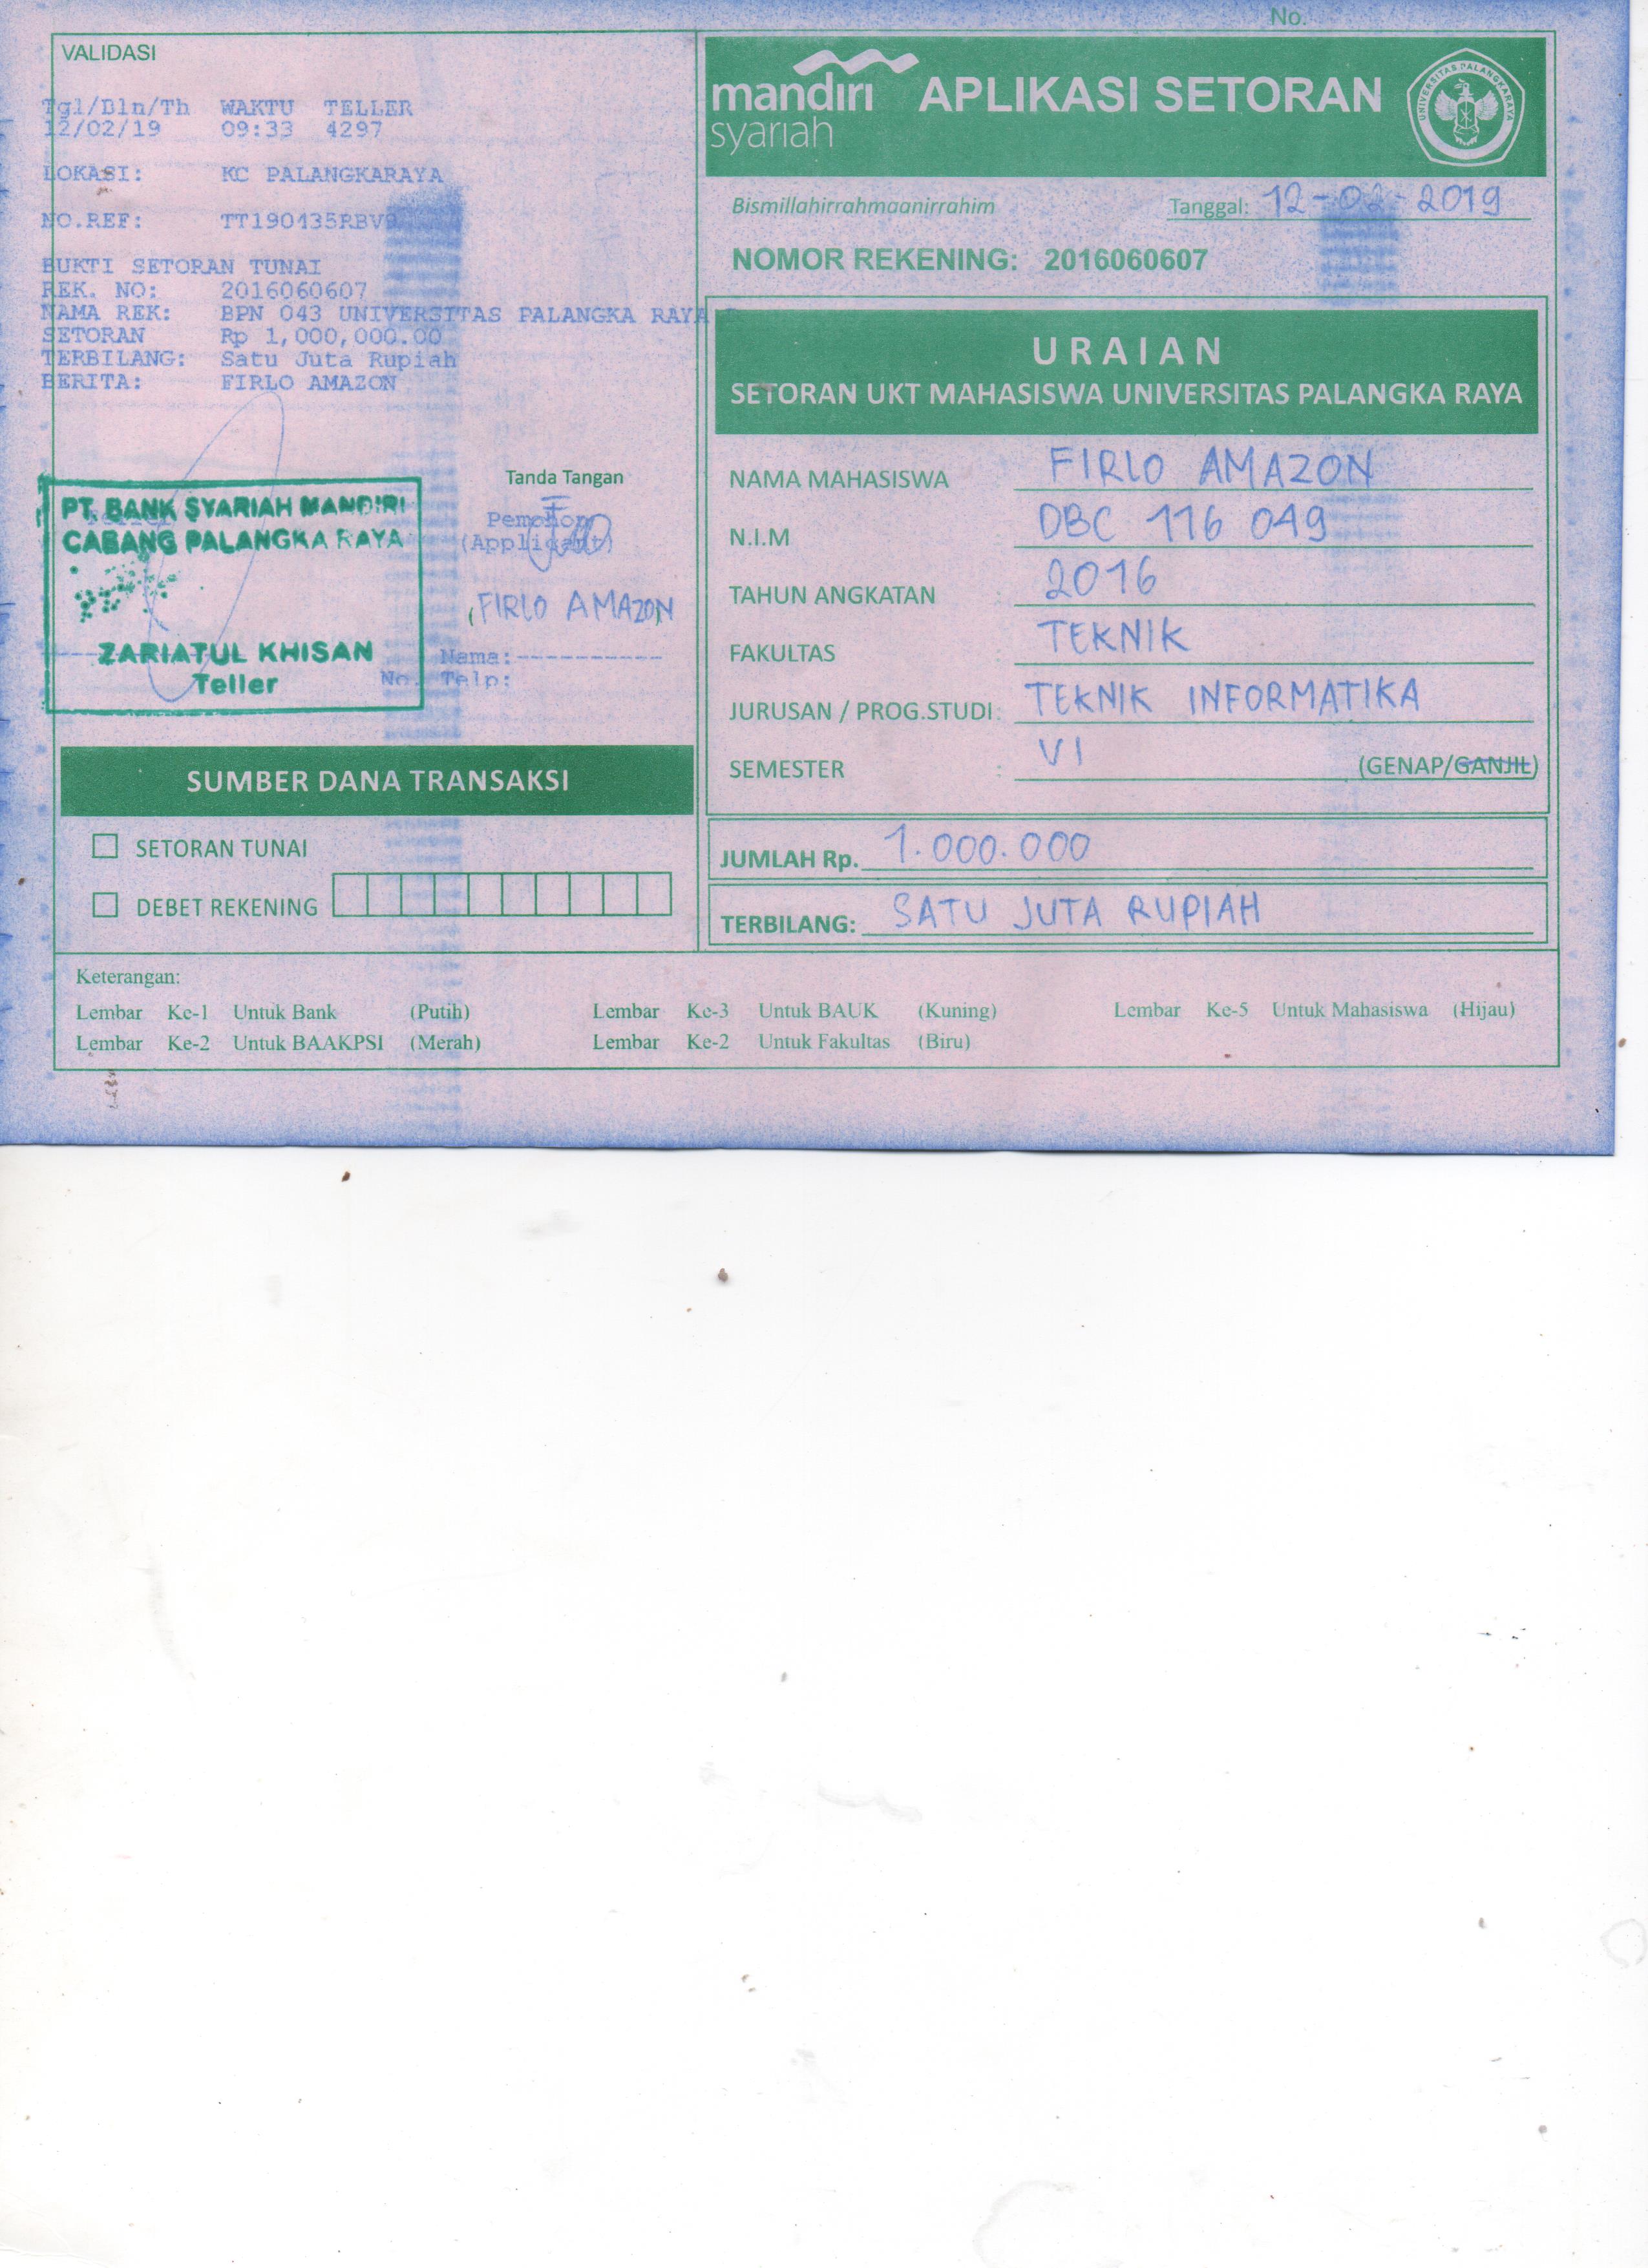 No.
VALIDASI
Tgl/Bln/Th WAKTU TELLER
12/02/19 09:33 4297
LOKASI: KC PALANGKARAYA
NO.REF:
BUKTI SETORAN TUNAI
REK. NO: 2016060607
NAMA REK: BPN 043 UNIVERSITAS PALANGKA RAYA
SETORAN Rp 1,000,000.00
TERBILANG: Satu Juta Rupiah
BERITA: FIRLO AMAZON
Tanda Tangan
Pemohon
(Applicant)
PT. BANK SYARIAH MANDIRI
CABANG PALANGKA RAYA
ZARIATUL KHISAN
Teller
(FIRLO AMAZON)
Nama:-----------
No. Telp:
SUMBER DANA TRANSAKSI
SETORAN TUNAI
DEBET REKENING
mandiri
syariah
APLIKASI SETORAN
UNIVERSITAS PALANGKARAYA
Bismillahirrahmaanirrahim
Tanggal: 12-02-2019
NOMOR REKENING: 2016060607
URAIAN
SETORAN UKT MAHASISWA UNIVERSITAS PALANGKA RAYA
NAMA MAHASISWA FIRLO AMAZON
N.I.M DBC 116 049
TAHUN ANGKATAN : 2016
FAKULTAS : TEKNIK
JURUSAN / PROG.STUDI : TEKNIK INFORMATIKA
SEMESTER : VI (GENAP/GANJIL)
JUMLAH Rp. 1.000.000
TERBILANG: SATU JUTA RUPIAH
Keterangan:
Lembar Ke-1 Untuk Bank (Putih) Lembar Ke-3 Untuk BAUK (Kuning) Lembar Ke-5 Untuk Mahasiswa (Hijau)
Lembar Ke-2 Untuk BAAKPSI (Merah) Lembar Ke-2 Untuk Fakultas (Biru)